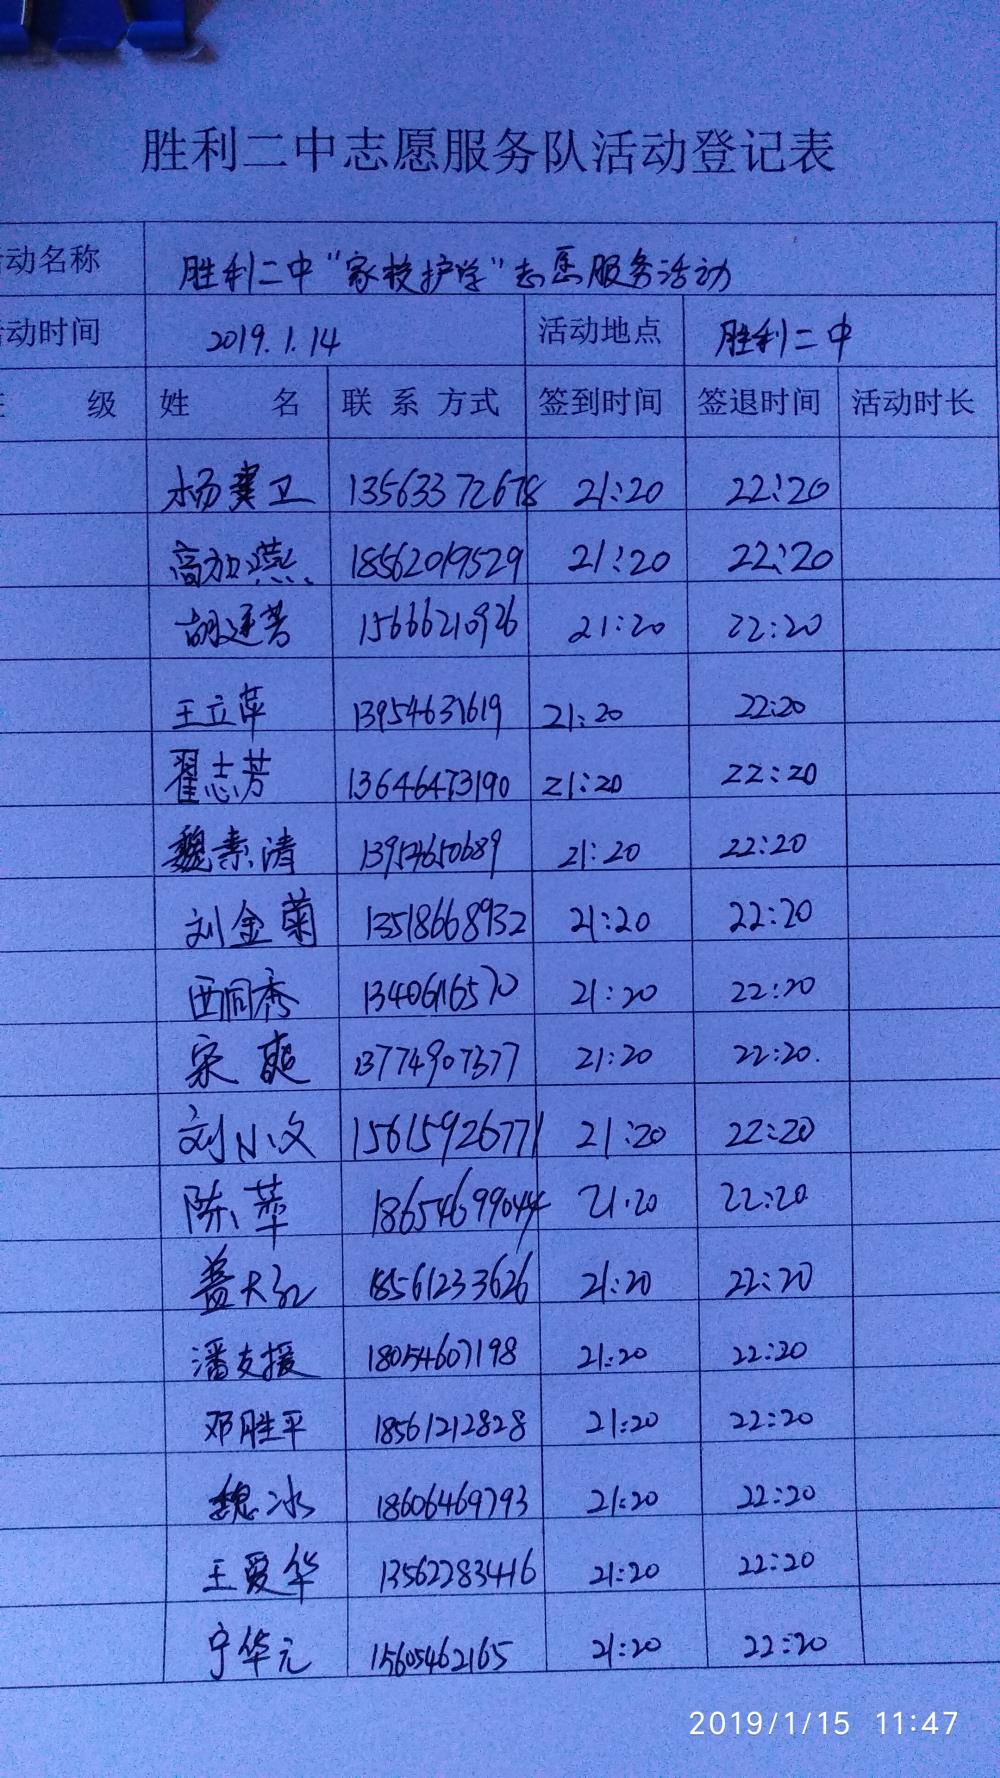 胜利二中志愿服务队活动登记表
动名称 胜利二中“家校护学”志愿服务活动
动时间 2019.1.14 活动地点 胜利二中
级 姓 名 联系方式 签到时间 签退时间 活动时长
杨冀卫 13563372678 21:20 22:20
高加燕 18562019529 21:20 22:20
胡延芳 15666210926 21:20 22:20
王立萍 13954631619 21:20 22:20
翟志芳 13646473190 21:20 22:20
魏素清 13954650689 21:20 22:20
刘金菊 13518668932 21:20 22:20
西同秀 13406116570 21:20 22:20
宋爽 13774907377 21:20 22:20.
刘小文 15615926771 21:20 22:20
陈苹 18654699044 21:20 22:20
盖大红 18561233626 21:20 22:20
潘友援 18054607198 21:20 22:20
邓胜平 18561212828 21:20 22:20
魏冰 18606469793 21:20 22:20
王爱华 13562283416 21:20 22:20
宁华元 15605462165 21:20 22:20
2019/1/15 11:47